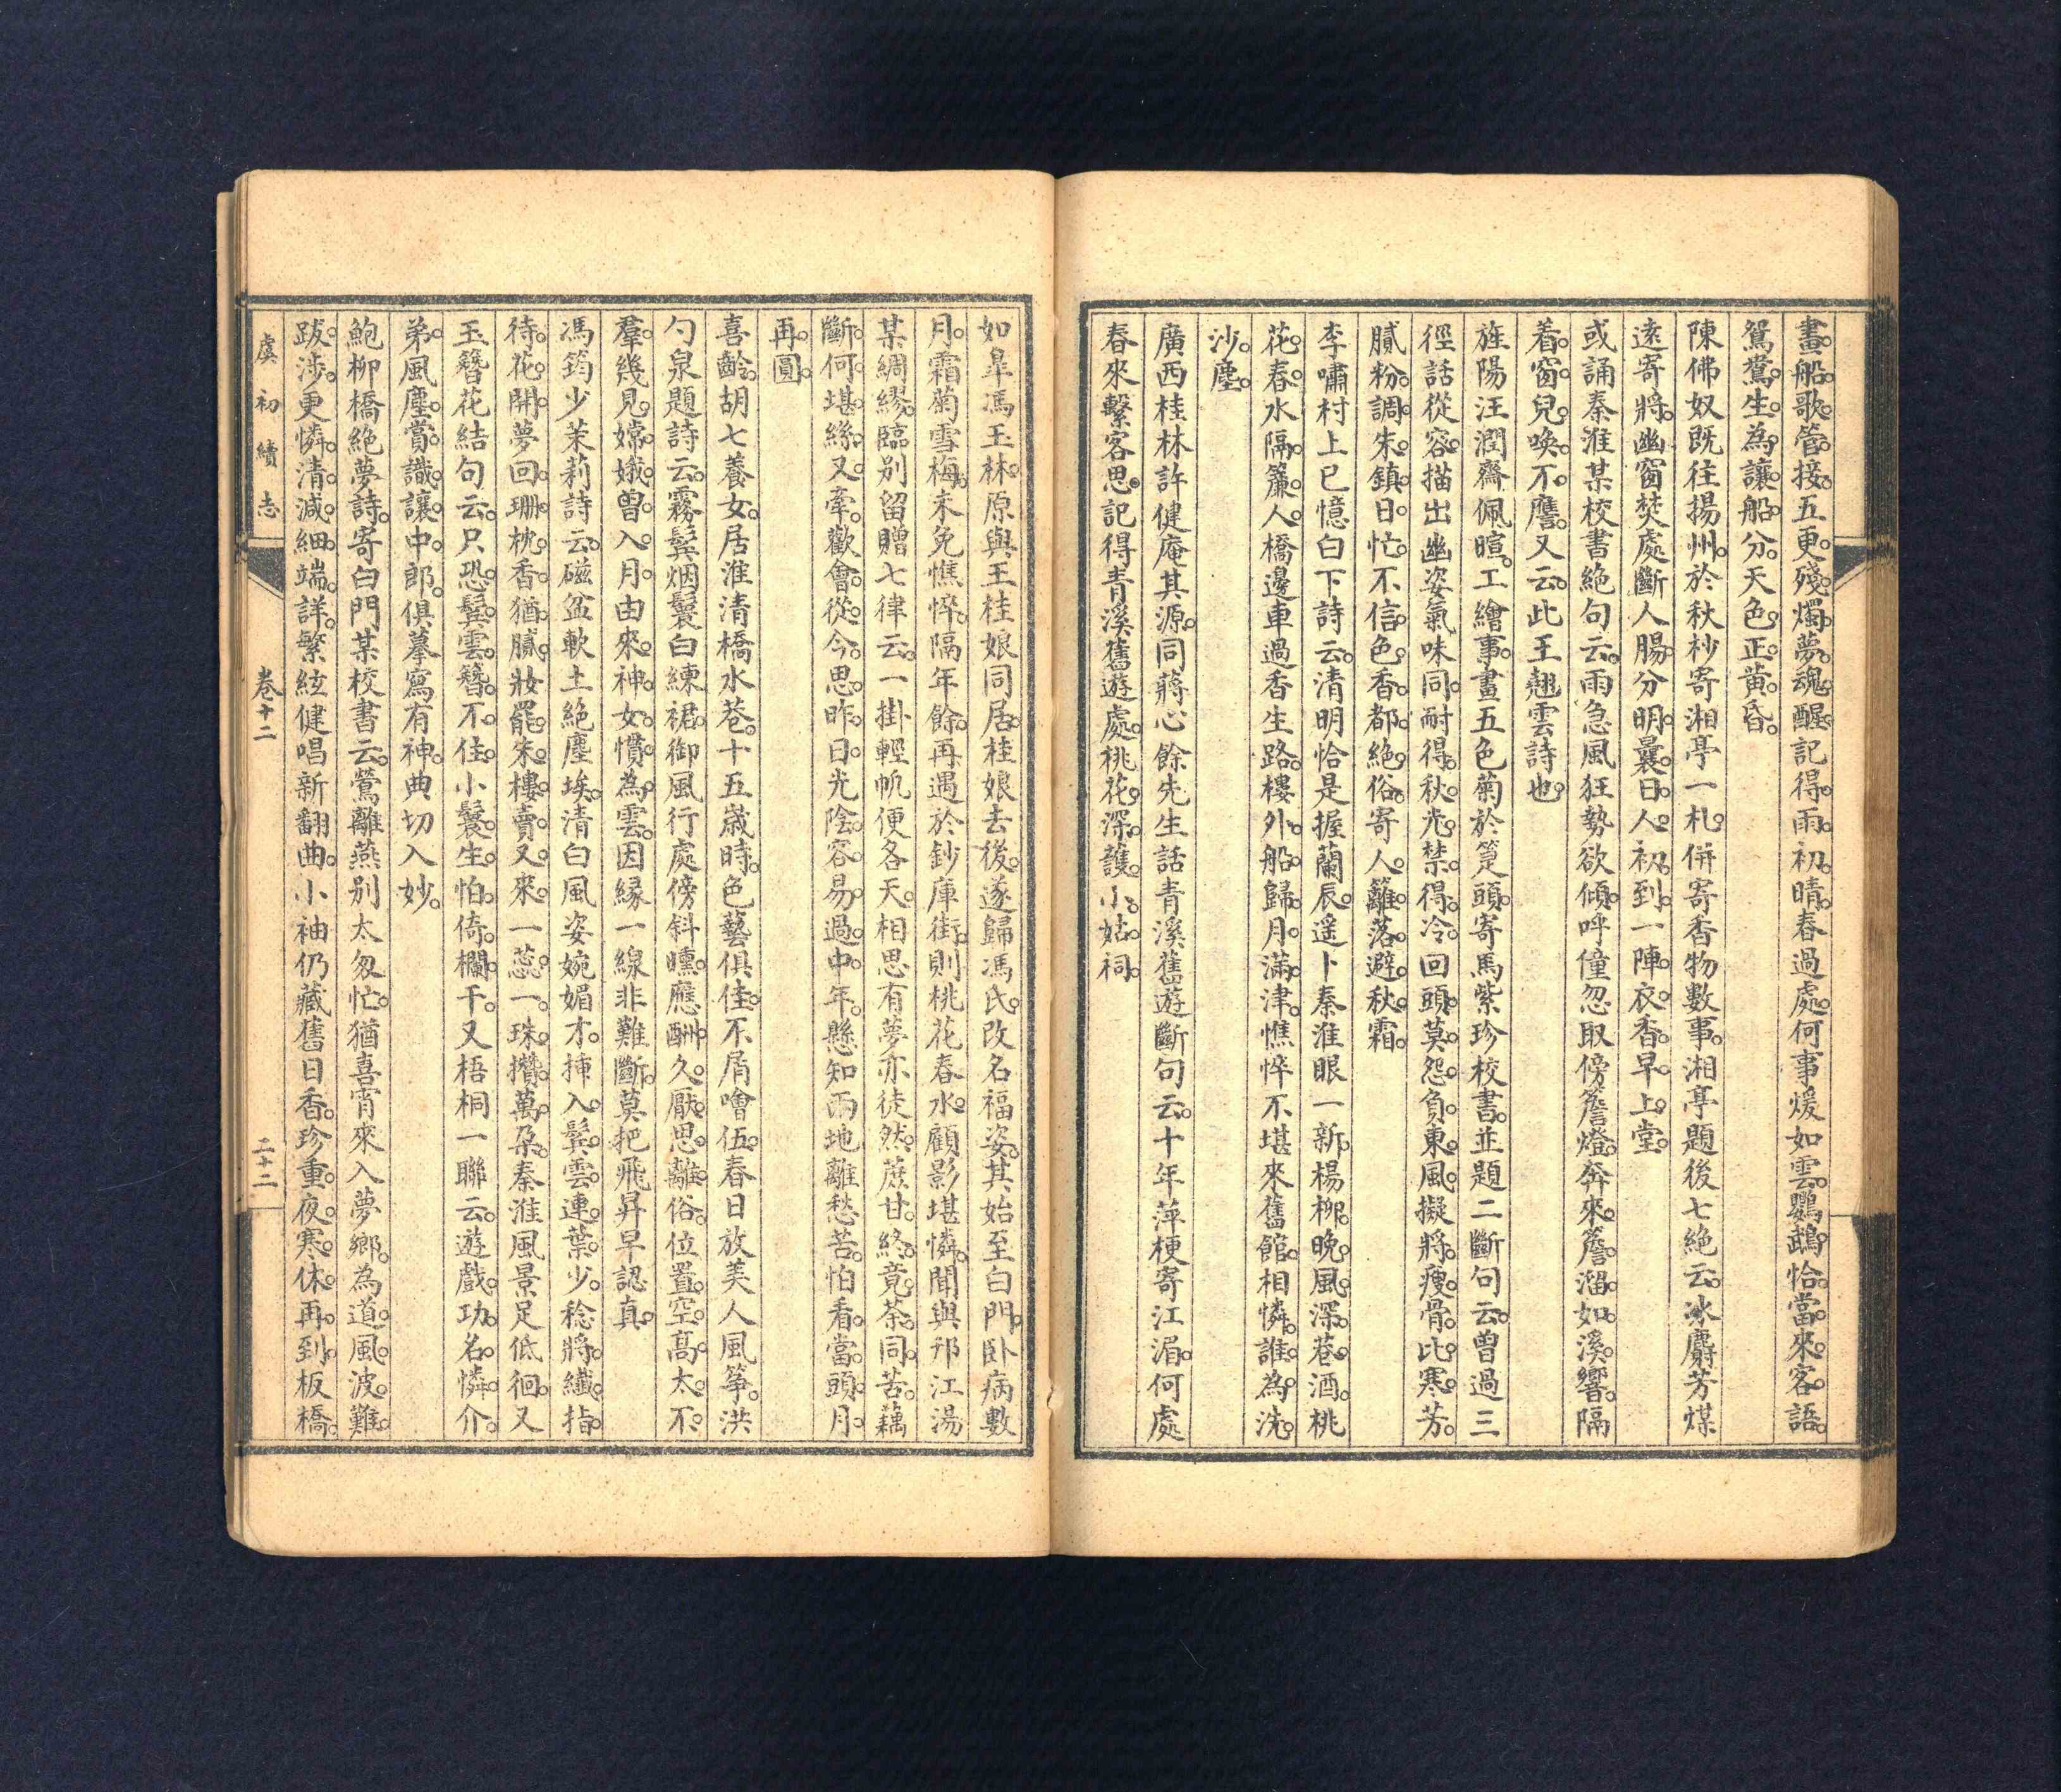 畫船歌管接五更。殘燭夢魂醒。記得雨初晴。春過處。何事煖如雲。鸚鵡恰當來客語。
鴛鴦生為讓船分。天色正黃昏。
陳佛奴既往揚州。於秋杪寄湘亭一札。併寄香物數事。湘亭題後七絕云。冰麝芳煤
遠寄將。幽窗焚處斷人腸。分明曩日人初到。一陣衣香早上堂。
或誦秦淮某校書絕句云。雨急風狂勢欲傾。呼僮忽取傍簷燈。奔來簷溜如溪響。隔
着窗兒喚不譍。又云。此王翹雲詩也。
旌陽汪潤齋佩暄。工繪事。畫五色菊於箑頭。寄馬紫珍校書。並題二斷句云。曾過三
徑話從容。描出幽姿氣味同。耐得秋光禁得冷。回頭莫怨負東風。擬將瘦骨比寒芳。
膩粉調朱鎮日忙。不信色香都絕俗。寄人籬落避秋霜。
李嘯村上巳憶白下詩云。清明恰是握蘭辰。遙卜秦淮眼一新。楊柳晚風深巷酒。桃
花春水隔簾人。橋邊車過香生路。樓外船歸月滿津。憔悴不堪來舊館。相憐誰為洗
沙塵。
廣西桂林許健庵其源。同蔣心餘先生話青溪舊遊斷句云。十年萍梗寄江湄。何處
春來繫客思。記得青溪舊遊處。桃花深護小姑祠。
如皐馮玉林。原與王桂娘同居。桂娘去後。遂歸馮氏。改名福姿。其始至白門。臥病數
月。霜菊雪梅。未免憔悴。隔年餘。再遇於鈔庫街。則桃花春水。顧影堪憐。聞與邗江湯
某綢繆。臨別留贈七律云。一掛輕帆便各天。相思有夢亦徒然。蔗甘終竟茶同苦。藕
斷何堪絲又牽。歡會從今思昨日。光陰容易過中年。懸知兩地離愁苦。怕看當頭月
再圓。
喜齡。胡七養女。居淮清橋水巷。十五歲時。色藝俱佳。不屑噲伍。春日放美人風箏。洪
勺泉題詩云。霧鬢烟鬟白練裙。御風行處傍斜曛。應酬久厭思離俗。位置空高太不
羣。幾見嫦娥曾入月。由來神女慣為雲。因緣一線非難斷。莫把飛昇早認真。
馮筠少茉莉詩云。磁盆軟土絕塵埃。清白風姿婉媚才。揷入鬢雲連葉少。稔將纖指
待花開。夢回珊枕香猶膩。妝罷朱樓賣又來。一蕊一珠攢萬朶。秦淮風景足低徊。又
玉簪花結句云。只恐鬢雲簪不住。小鬟生怕倚欄干。又梧桐一聯云。遊戲功名憐介
弟。風塵賞識讓中郎。俱摹寫有神。典切入妙。
鮑柳橋絕夢詩。寄白門某校書云。鶯離燕別太匆忙。猶喜宵來入夢鄉。為道風波難
跋涉。更憐清減細端詳。繁絃健唱新翻曲。小袖仍藏舊日香。珍重夜寒休再到。板橋
虞初續志
卷十二
二十二